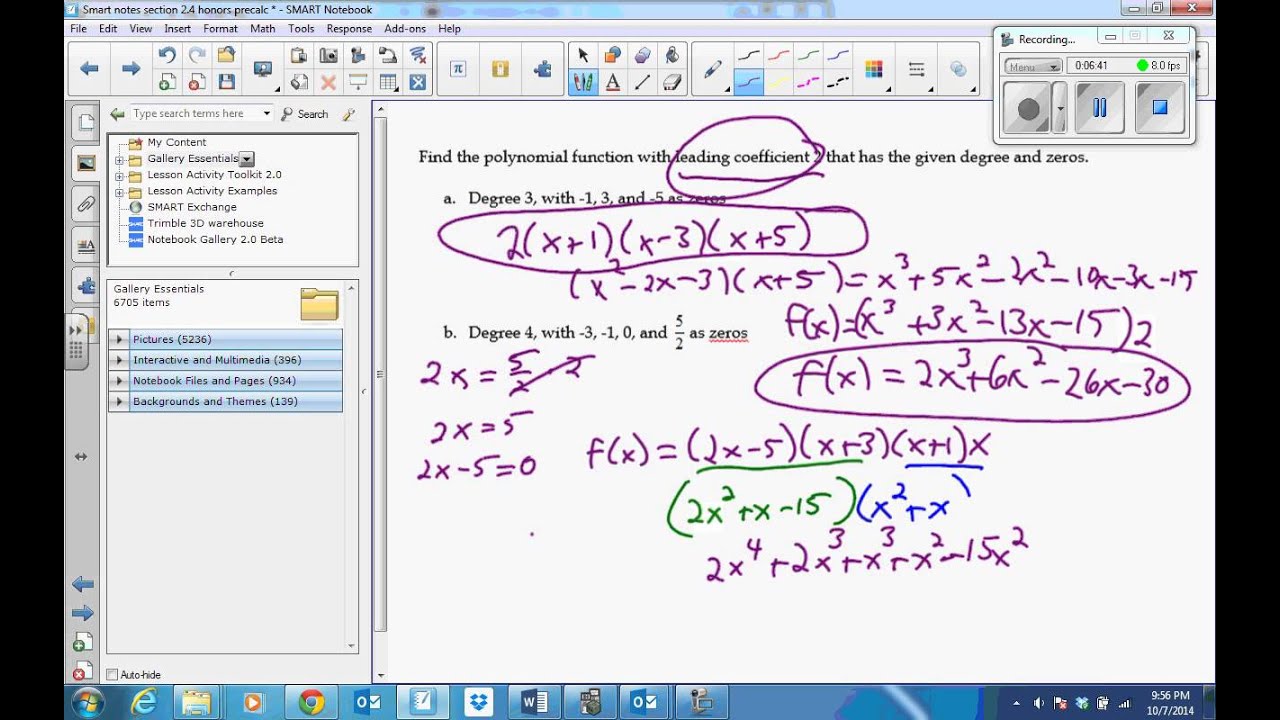 Smart notes section 2.4 honors precalc * - SMART Notebook
File Edit View Insert Format Math Tools Response Add-ons Help
Recording...
Menu 0:06:41 8.0 fps
Type search terms here Search
My Content
Gallery Essentials
Lesson Activity Toolkit 2.0
Lesson Activity Examples
SMART Exchange
Trimble 3D warehouse
Notebook Gallery 2.0 Beta
Gallery Essentials
6705 items
Pictures (5236)
Interactive and Multimedia (396)
Notebook Files and Pages (934)
Backgrounds and Themes (139)
Auto-hide
Find the polynomial function with leading coefficient 2 that has the given degree and zeros.
a. Degree 3, with -1, 3, and -5 as zeros
2(x+1)(x-3)(x+5)
(x²-2x-3)(x+5) = x³+5x²-2x²-10x-3x-15
f(x)=(x³+3x²-13x-15)2
f(x) = 2x³+6x²-26x-30
b. Degree 4, with -3, -1, 0, and 5/2 as zeros
2x = 5/2 · 2
2x = 5
2x-5=0
f(x) = (2x-5)(x+3)(x+1)x
(2x²+x-15)(x²+x)
2x⁴+2x³+x³+x²-15x²
9:56 PM
10/7/2014